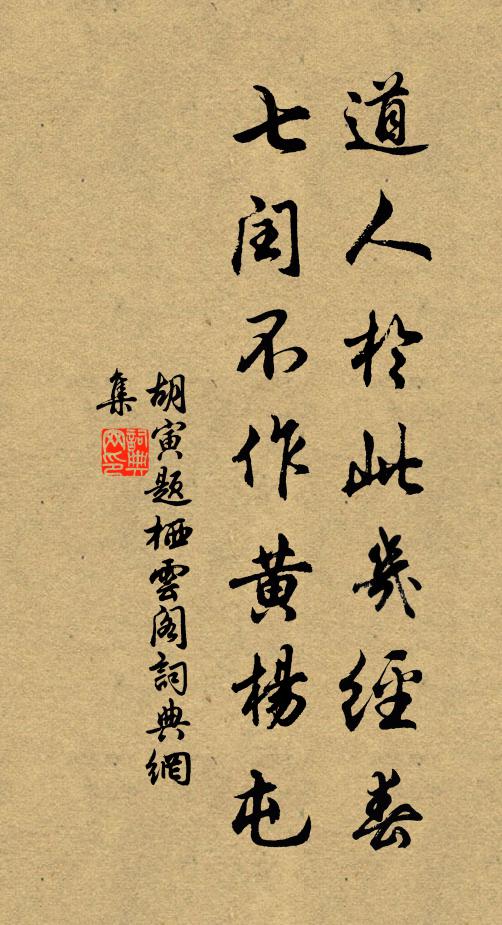 道人於此幾經春
七閏不作黄楊屯
胡寅題栖雲閣詞典網
集
詞典網印